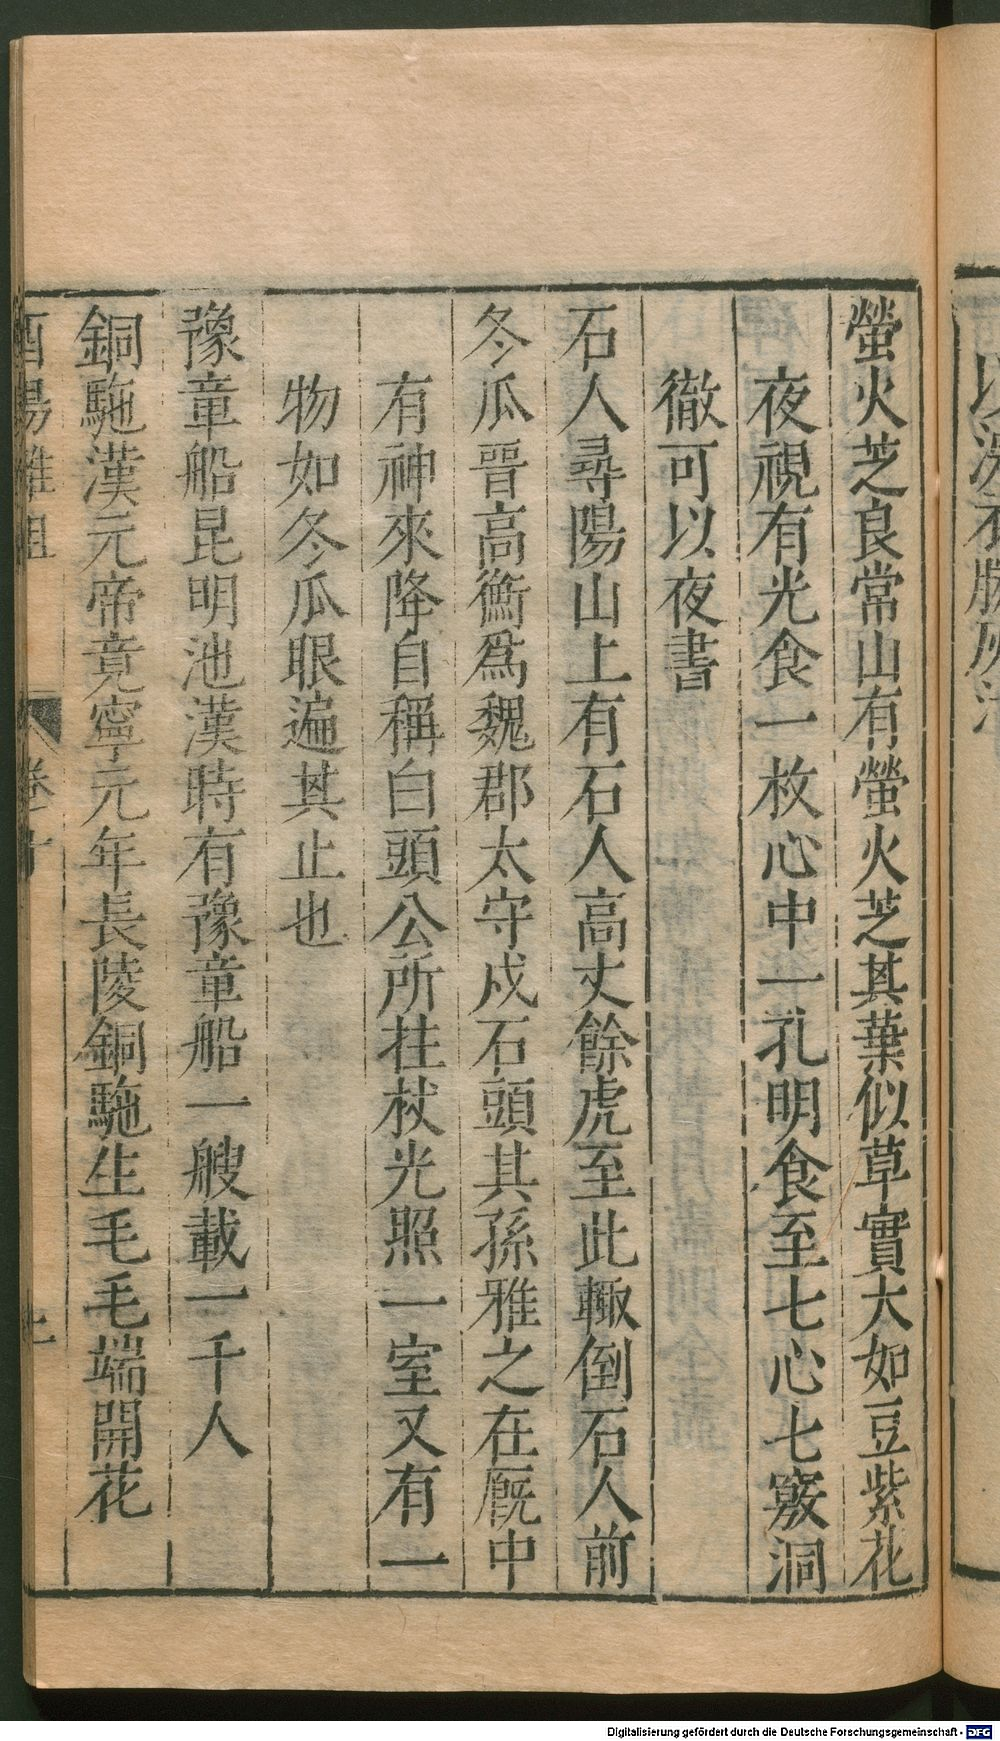 螢火芝良常山有螢火芝其葉似草實大如豆紫花
夜視有光食一枚心中一孔明食至七心七竅洞
徹可以夜書
石人尋陽山上有石人高丈餘虎至此輙倒石人前
冬瓜晉高衡爲魏郡太守戍石頭其孫雅之在厩中
有神來降自稱白頭公所拄杖光照一室又有一
物如冬瓜眼遍其止也
豫章船昆明池漢時有豫章船一艘載一千人
銅駞漢元帝竟寧元年長陵銅駞生毛毛端開花
酉陽雜俎 卷十
Digitalisierung gefördert durch die Deutsche Forschungsgemeinschaft - DFG